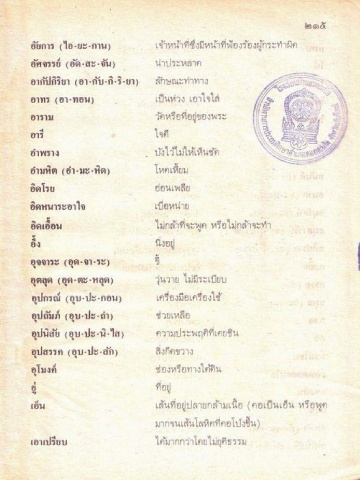 ๒๑๕
อัยการ (ไอ-ยะ-กาน) เจ้าหน้าที่ซึ่งมีหน้าที่ฟ้องร้องผู้กระทำผิด
อัศจรรย์ (อัด-สะ-จัน) น่าประหลาด
อากัปกิริยา (อา-กับ-กิ-ริ-ยา) ลักษณะท่าทาง
อาทร (อา-ทอน) เป็นห่วง เอาใจใส่
อาราม วัดหรือที่อยู่ของพระ
อารี ใจดี
อำพราง บังไว้ไม่ให้เห็นชัด
อำมหิต (อำ-มะ-หิด) โหดเหี้ยม
อิดโรย อ่อนเพลีย
อิดหนาระอาใจ เบื่อหน่าย
อิดเอื้อน ไม่กล้าที่จะพูด หรือไม่กล้าจะทำ
อึ้ง นิ่งอยู่
อุจจาระ (อุด-จา-ระ) ขี้
อุตลุด (อุด-ตะ-หลุด) วุ่นวาย ไม่มีระเบียบ
อุปกรณ์ (อุบ-ปะ-กอน) เครื่องมือเครื่องใช้
อุปถัมภ์ (อุบ-ปะ-ถำ) ช่วยเหลือ
อุปนิสัย (อุบ-ปะ-นิ-ไส) ความประพฤติที่เคยชิน
อุปสรรค (อุบ-ปะ-สัก) สิ่งกีดขวาง
อุโมงค์ ช่องหรือทางใต้ดิน
อู่ ที่อยู่
เอ็น เส้นที่อยู่ปลายกล้ามเนื้อ (คอเป็นเอ็น หรือพูด
มากจนเส้นโลหิตที่คอโป่งขึ้น)
เอาเปรียบ ได้มากกว่าโดยไม่ยุติธรรม